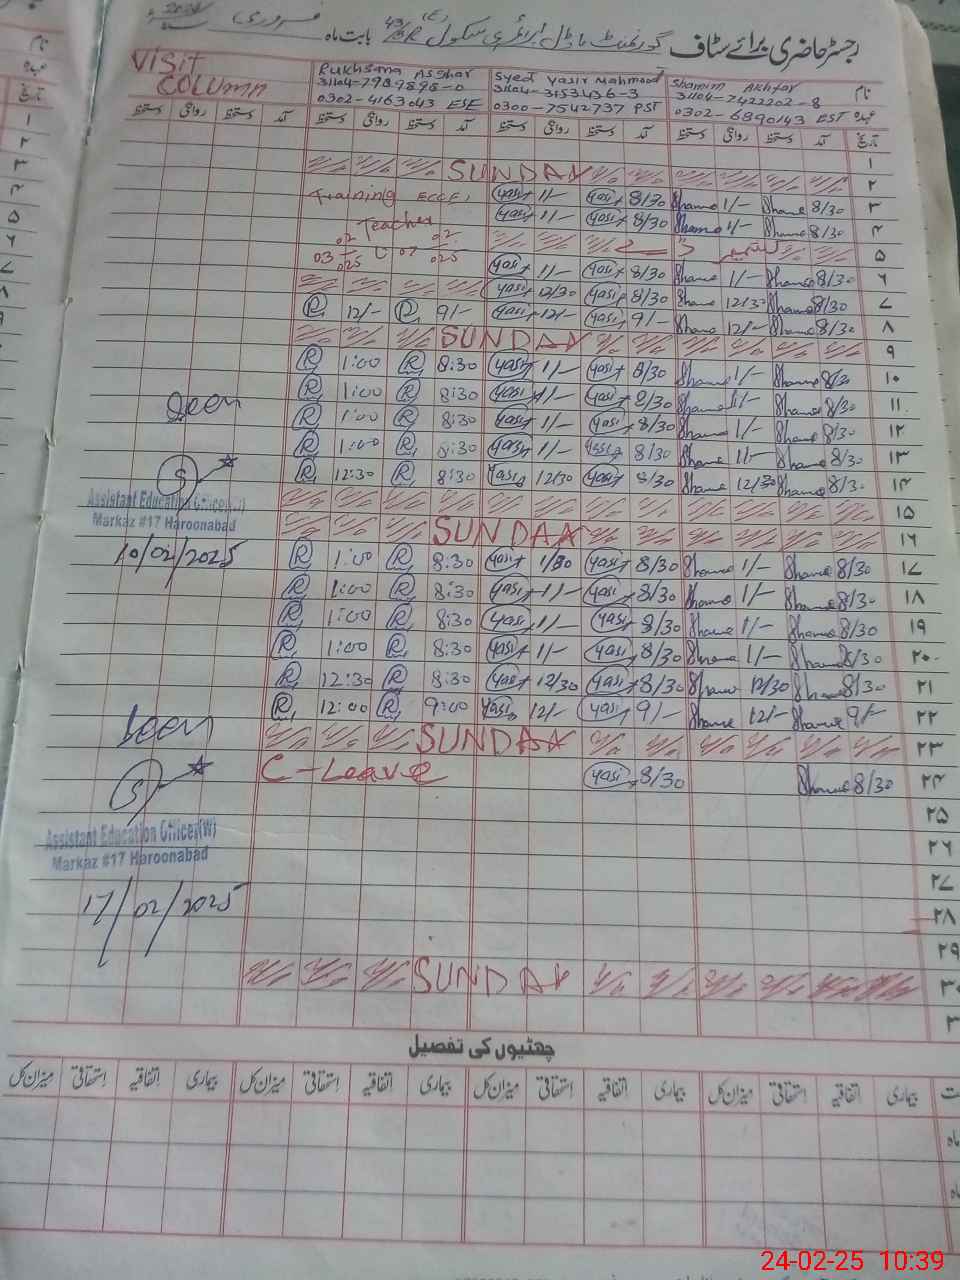 رجسٹر حاضری برائے سٹاف گورنمنٹ ماڈل پرائمری سکول 43/3R (E) بابت ماہ فروری
VISIT COLUMN
نام
Rukhsana Asghar
Syed Yasir Mahmood
Shamim Akhtar
31104-7989898-0
31104-3153436-3
31104-7422202-8
عہدہ
0302-4163043 ESE
0300-7542737 PST
0302-6890143 EST
تاریخ آمد دستخط روانگی دستخط آمد دستخط روانگی دستخط آمد دستخط روانگی دستخط آمد دستخط روانگی دستخط
۱
۲ SUNDAY
۳ 8/30 Shame 1/- Shame 8/30 Yasir 1/- Yasir Training ECCE,
۴ 8/30 Shame 1/- Shame 8/30 Yasir 1/- Yasir Teacher
۵ 03/02/025 07/02/025
۶ 8/30 Shame 1/- Shame 8/30 Yasir 1/- Yasir
۷ 8/30 Shame 12/30 Shame 8/30 Yasir 12/30 Yasir
۸ 8/30 Shame 12/- Shame 9/- Yasir 12/- Yasir 9/- R 12/- R
۹ SUNDAY
۱۰ 8/30 Shame 1/- Shame 8/30 Yasir 1/- Yasir 8:30 R 1:00 R
۱۱ 8/30 Shame 1/- Shame 8/30 Yasir 1/- Yasir 8:30 R 1:00 R
۱۲ 8/30 Shame 1/- Shame 8/30 Yasir 1/- Yasir 8:30 R 1:00 R
۱۳ 8/30 Shame 1/- Shame 8/30 Yasir 1/- Yasir 8:30 R 1:00 R
۱۴ 8/30 Shame 12/30 Shame 8/30 Yasir 12/30 Yasir 8:30 R 12:30 R
۱۵
۱۶ SUNDAY
۱۷ 8/30 Shame 1/- Shame 8/30 Yasir 1/30 Yasir 8:30 R 1:00 R
۱۸ 8/30 Shame 1/- Shame 8/30 Yasir 1/- Yasir 8:30 R 1:00 R
۱۹ 8/30 Shame 1/- Shame 8/30 Yasir 1/- Yasir 8:30 R 1:00 R
۲۰ 8/30 Shame 1/- Shame 8/30 Yasir 1/- Yasir 8:30 R 1:00 R
۲۱ 8/30 Shame 12/30 Shame 8/30 Yasir 12/30 Yasir 8:30 R 12:30 R
۲۲ 9/- Shame 12/- Shame 9/- Yasir 12/- Yasir 9:00 R 12:00 R
۲۳ SUNDAY
۲۴ 8/30 Shame 8/30 Yasir C-Leave
۲۵
۲۶
۲۷
۲۸
۲۹
۳۰ SUNDAY
Seen
Assistant Education Officer(W)
Markaz #17 Haroonabad
10/02/2025
Seen
Assistant Education Officer(W)
Markaz #17 Haroonabad
17/02/2025
چھٹیوں کی تفصیل
بیماری اتفاقیہ استحقاقی میزان کل بیماری اتفاقیہ استحقاقی میزان کل بیماری اتفاقیہ استحقاقی میزان کل بیماری اتفاقیہ استحقاقی میزان کل
24-02-25 10:39